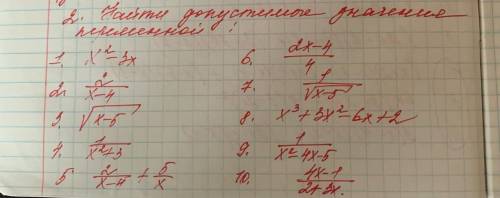 2. Найти допустимые значение
переменной:
1. x² - 3x
2. 2/(x-4)
3. √(x-5)
4. 1/(x²+3)
5 2/(x-4) + 5/x
6. (2x-4)/4
7. 1/√(x-5)
8. x³ + 3x² - 6x + 2
9. 1/(x²-4x-5)
10. (4x-1)/(2+3x)